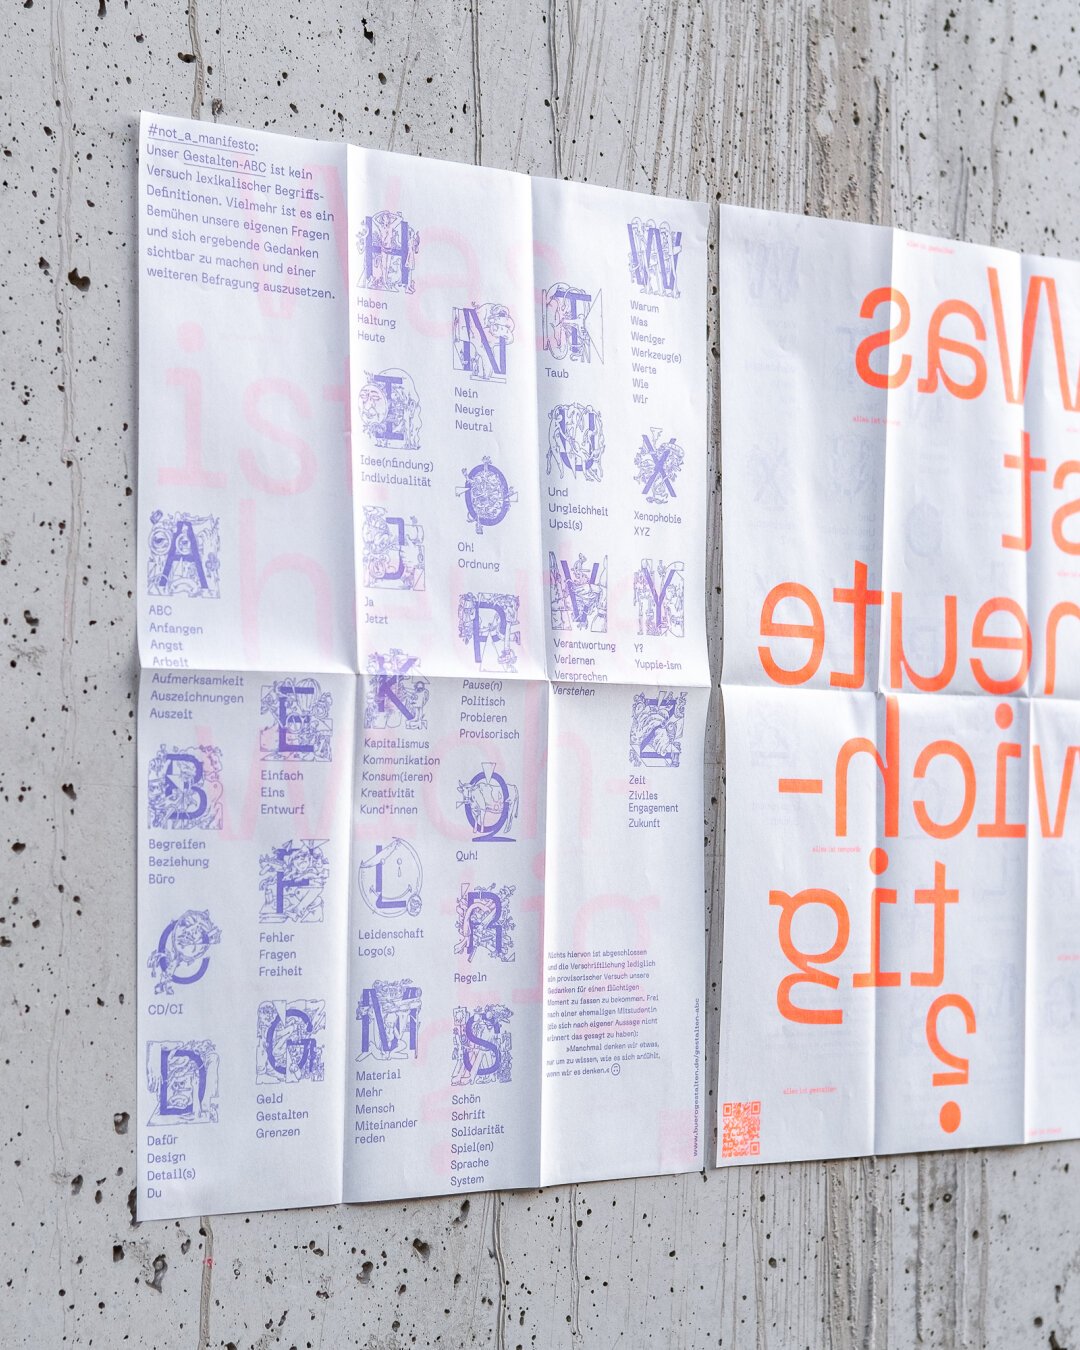 #not_a_manifesto:
Unser Gestalten-ABC ist kein
Versuch lexikalischer Begriffs-
Definitionen. Vielmehr ist es ein
Bemühen unsere eigenen Fragen
und sich ergebende Gedanken
sichtbar zu machen und einer
weiteren Befragung auszusetzen.
A
ABC
Anfangen
Angst
Arbeit
Aufmerksamkeit
Auszeichnungen
Auszeit
B
Begreifen
Beziehung
Büro
C
CD/CI
D
Dafür
Design
Detail(s)
Du
E
Einfach
Eins
Entwurf
F
Fehler
Fragen
Freiheit
G
Geld
Gestalten
Grenzen
H
Haben
Haltung
Heute
I
Idee(nfindung)
Individualität
J
Ja
Jetzt
K
Kapitalismus
Kommunikation
Konsum(ieren)
Kreativität
Kund*innen
L
Leidenschaft
Logo(s)
M
Material
Mehr
Mensch
Miteinander
reden
N
Nein
Neugier
Neutral
O
Oh!
Ordnung
P
Pause(n)
Politisch
Probieren
Provisorisch
Q
Quh!
R
Regeln
S
Schön
Schrift
Solidarität
Spiel(en)
Sprache
System
T
Taub
U
Und
Ungleichheit
Upsi(s)
V
Verantwortung
Verlernen
Versprechen
Verstehen
W
Warum
Was
Weniger
Werkzeug(e)
Werte
Wie
Wir
X
Xenophobie
XYZ
Y
Y?
Yuppie-ism
Z
Zeit
Ziviles
Engagement
Zukunft
Nichts hiervon ist abgeschlossen
und die Verschriftlichung lediglich
ein provisorischer Versuch unsere
Gedanken für einen flüchtigen
Moment zu fassen zu bekommen. Frei
nach einer ehemaligen Mitstudentin
(die sich nach eigener Aussage nicht
erinnert das gesagt zu haben):
»Manchmal denken wir etwas,
nur um zu wissen, wie es sich anfühlt,
wenn wir es denken.«
www.buerogestalten.de/gestalten-abc
Was
ist
heute
wich-
tig?
alles ist gestalten